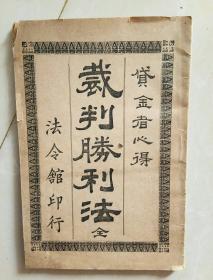 貸金者心得
裁判勝利法全
法令館印行